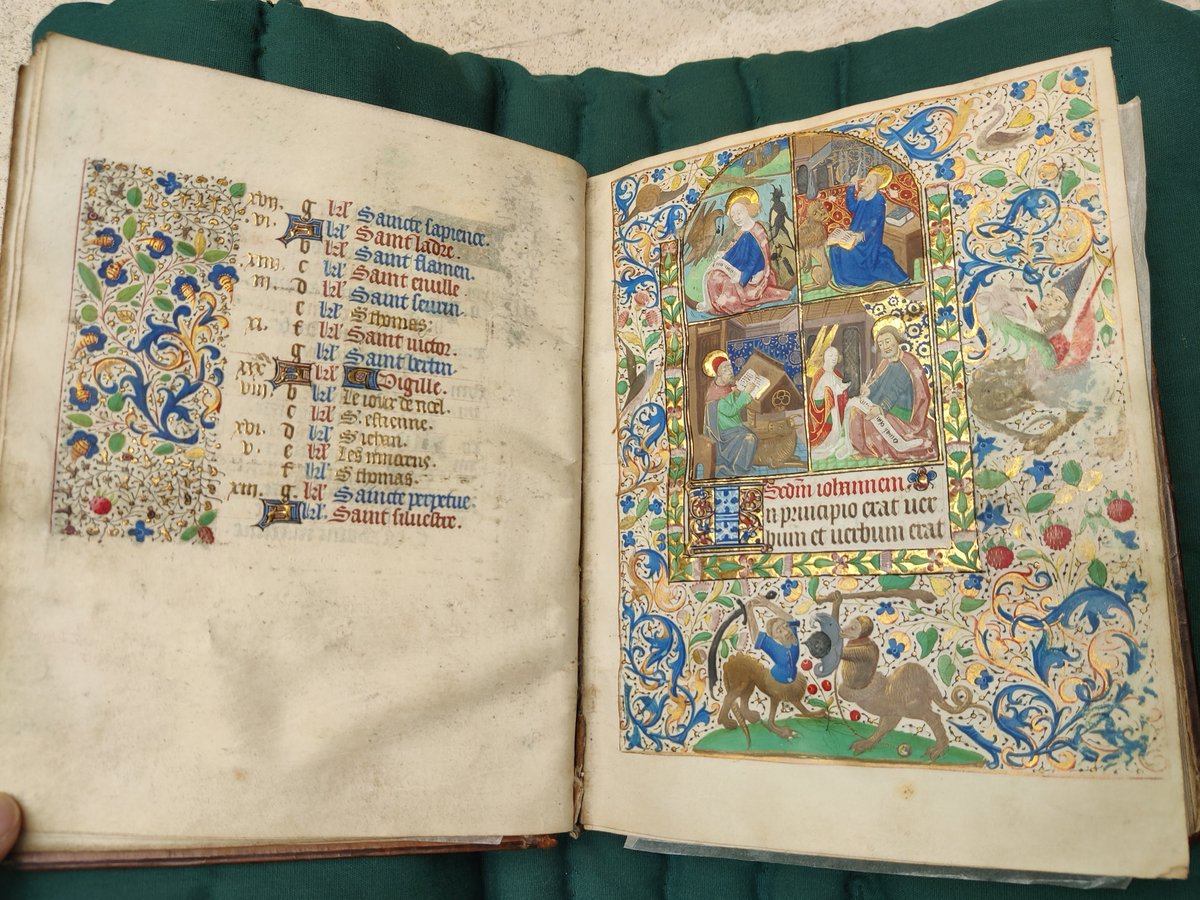 xvii. g kl' Saincte sapience.
vi. A kl' Saint ladre.
b kl' Saint flamen.
xiiii. c kl' Saint
iii. d kl' Saint seurin.
e kl' S thomas.
xi. f kl' Saint victor.
g kl' Saint bertin.
xix A kl' Vigille.
viii. b kl' Le iour de noel.
c kl' S. estienne.
xvi. d kl' S iehan.
v. e kl' Les innocens.
f kl' S thomas.
xiii. g. kl' Saincte perpetue
A kl'. Saint siluestre.
Secdm iohannem
In principio erat uer
bum et uerbum erat